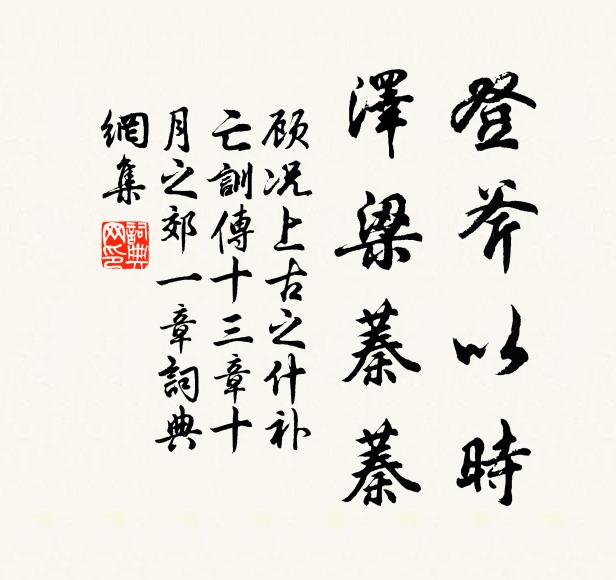 登斧以時
澤梁蓁蓁
顾况上古之什补
亡訓傳十三章十
月之郊一章詞典
網集
詞典網印